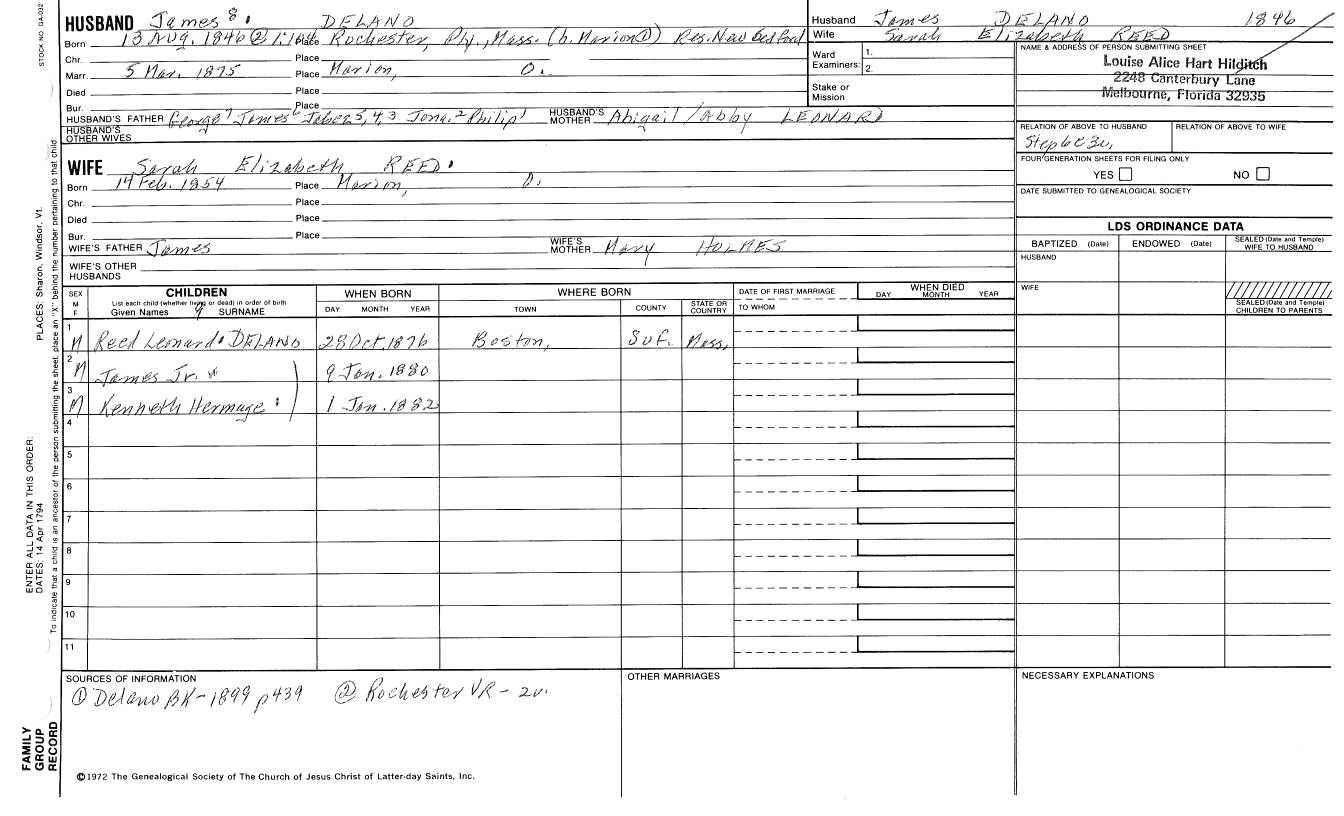 STOCK NO. GA-032
HUSBAND James 8. DELANO
Born 13 Aug. 1846 ② 1:104 Place Rochester, Ply., Mass. (b. Marion ①) Res. New Bedford
Chr. Place
Marr. 5 Mar. 1875 Place Marion, O.
Died Place
Bur. Place
HUSBAND'S FATHER George 7 James 6 Jabez 5, 4, 3 Jona. 2 Philip 1 HUSBAND'S MOTHER Abigail / Abby LEONARD
HUSBAND'S OTHER WIVES
WIFE Sarah Elizabeth REED
Born 14 Feb. 1854 Place Marion, O.
Chr. Place
Died Place
Bur. Place
WIFE'S FATHER James WIFE'S MOTHER Mary HOLMES
WIFE'S OTHER HUSBANDS
Husband James DELANO 1846
Wife Sarah Elizabeth REED
Ward Examiners: 1.
2.
Stake or Mission
NAME & ADDRESS OF PERSON SUBMITTING SHEET
Louise Alice Hart Hilditch
2248 Canterbury Lane
Melbourne, Florida 32935
RELATION OF ABOVE TO HUSBAND RELATION OF ABOVE TO WIFE
FOUR GENERATION SHEETS FOR FILING ONLY
YES NO
DATE SUBMITTED TO GENEALOGICAL SOCIETY
LDS ORDINANCE DATA
BAPTIZED (Date) ENDOWED (Date) SEALED (Date and Temple) WIFE TO HUSBAND
HUSBAND
WIFE
SEALED (Date and Temple) CHILDREN TO PARENTS
SEX M F CHILDREN WHEN BORN WHERE BORN DATE OF FIRST MARRIAGE WHEN DIED
List each child (whether living or dead) in order of birth
Given Names 9 SURNAME DAY MONTH YEAR TOWN COUNTY STATE OR COUNTRY TO WHOM DAY MONTH YEAR
1 M Reed Leonard DELANO 28 Oct. 1876 Boston, Suf. Mass.
2 M James Jr. 9 Jan. 1880
3 M Kenneth Hermage 1 Jan. 1882
4
5
6
7
8
9
10
11
SOURCES OF INFORMATION OTHER MARRIAGES NECESSARY EXPLANATIONS
① Delano BK - 1899 p439 ② Rochester VR - 2v.
©1972 The Genealogical Society of The Church of Jesus Christ of Latter-day Saints, Inc.
PLACES: Sharon, Windsor, Vt.
ENTER ALL DATA IN THIS ORDER:
DATES: 14 Apr 1794
To indicate that a child is an ancestor of the person submitting the sheet, place an "X" behind the number pertaining to that child
FAMILY GROUP RECORD